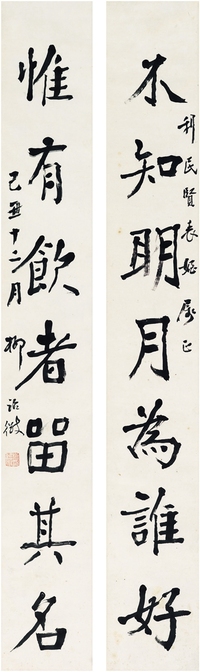 不知明月為誰好
利民賢表姪屬正
惟有飲者留其名
己丑十二月 柳詒徵